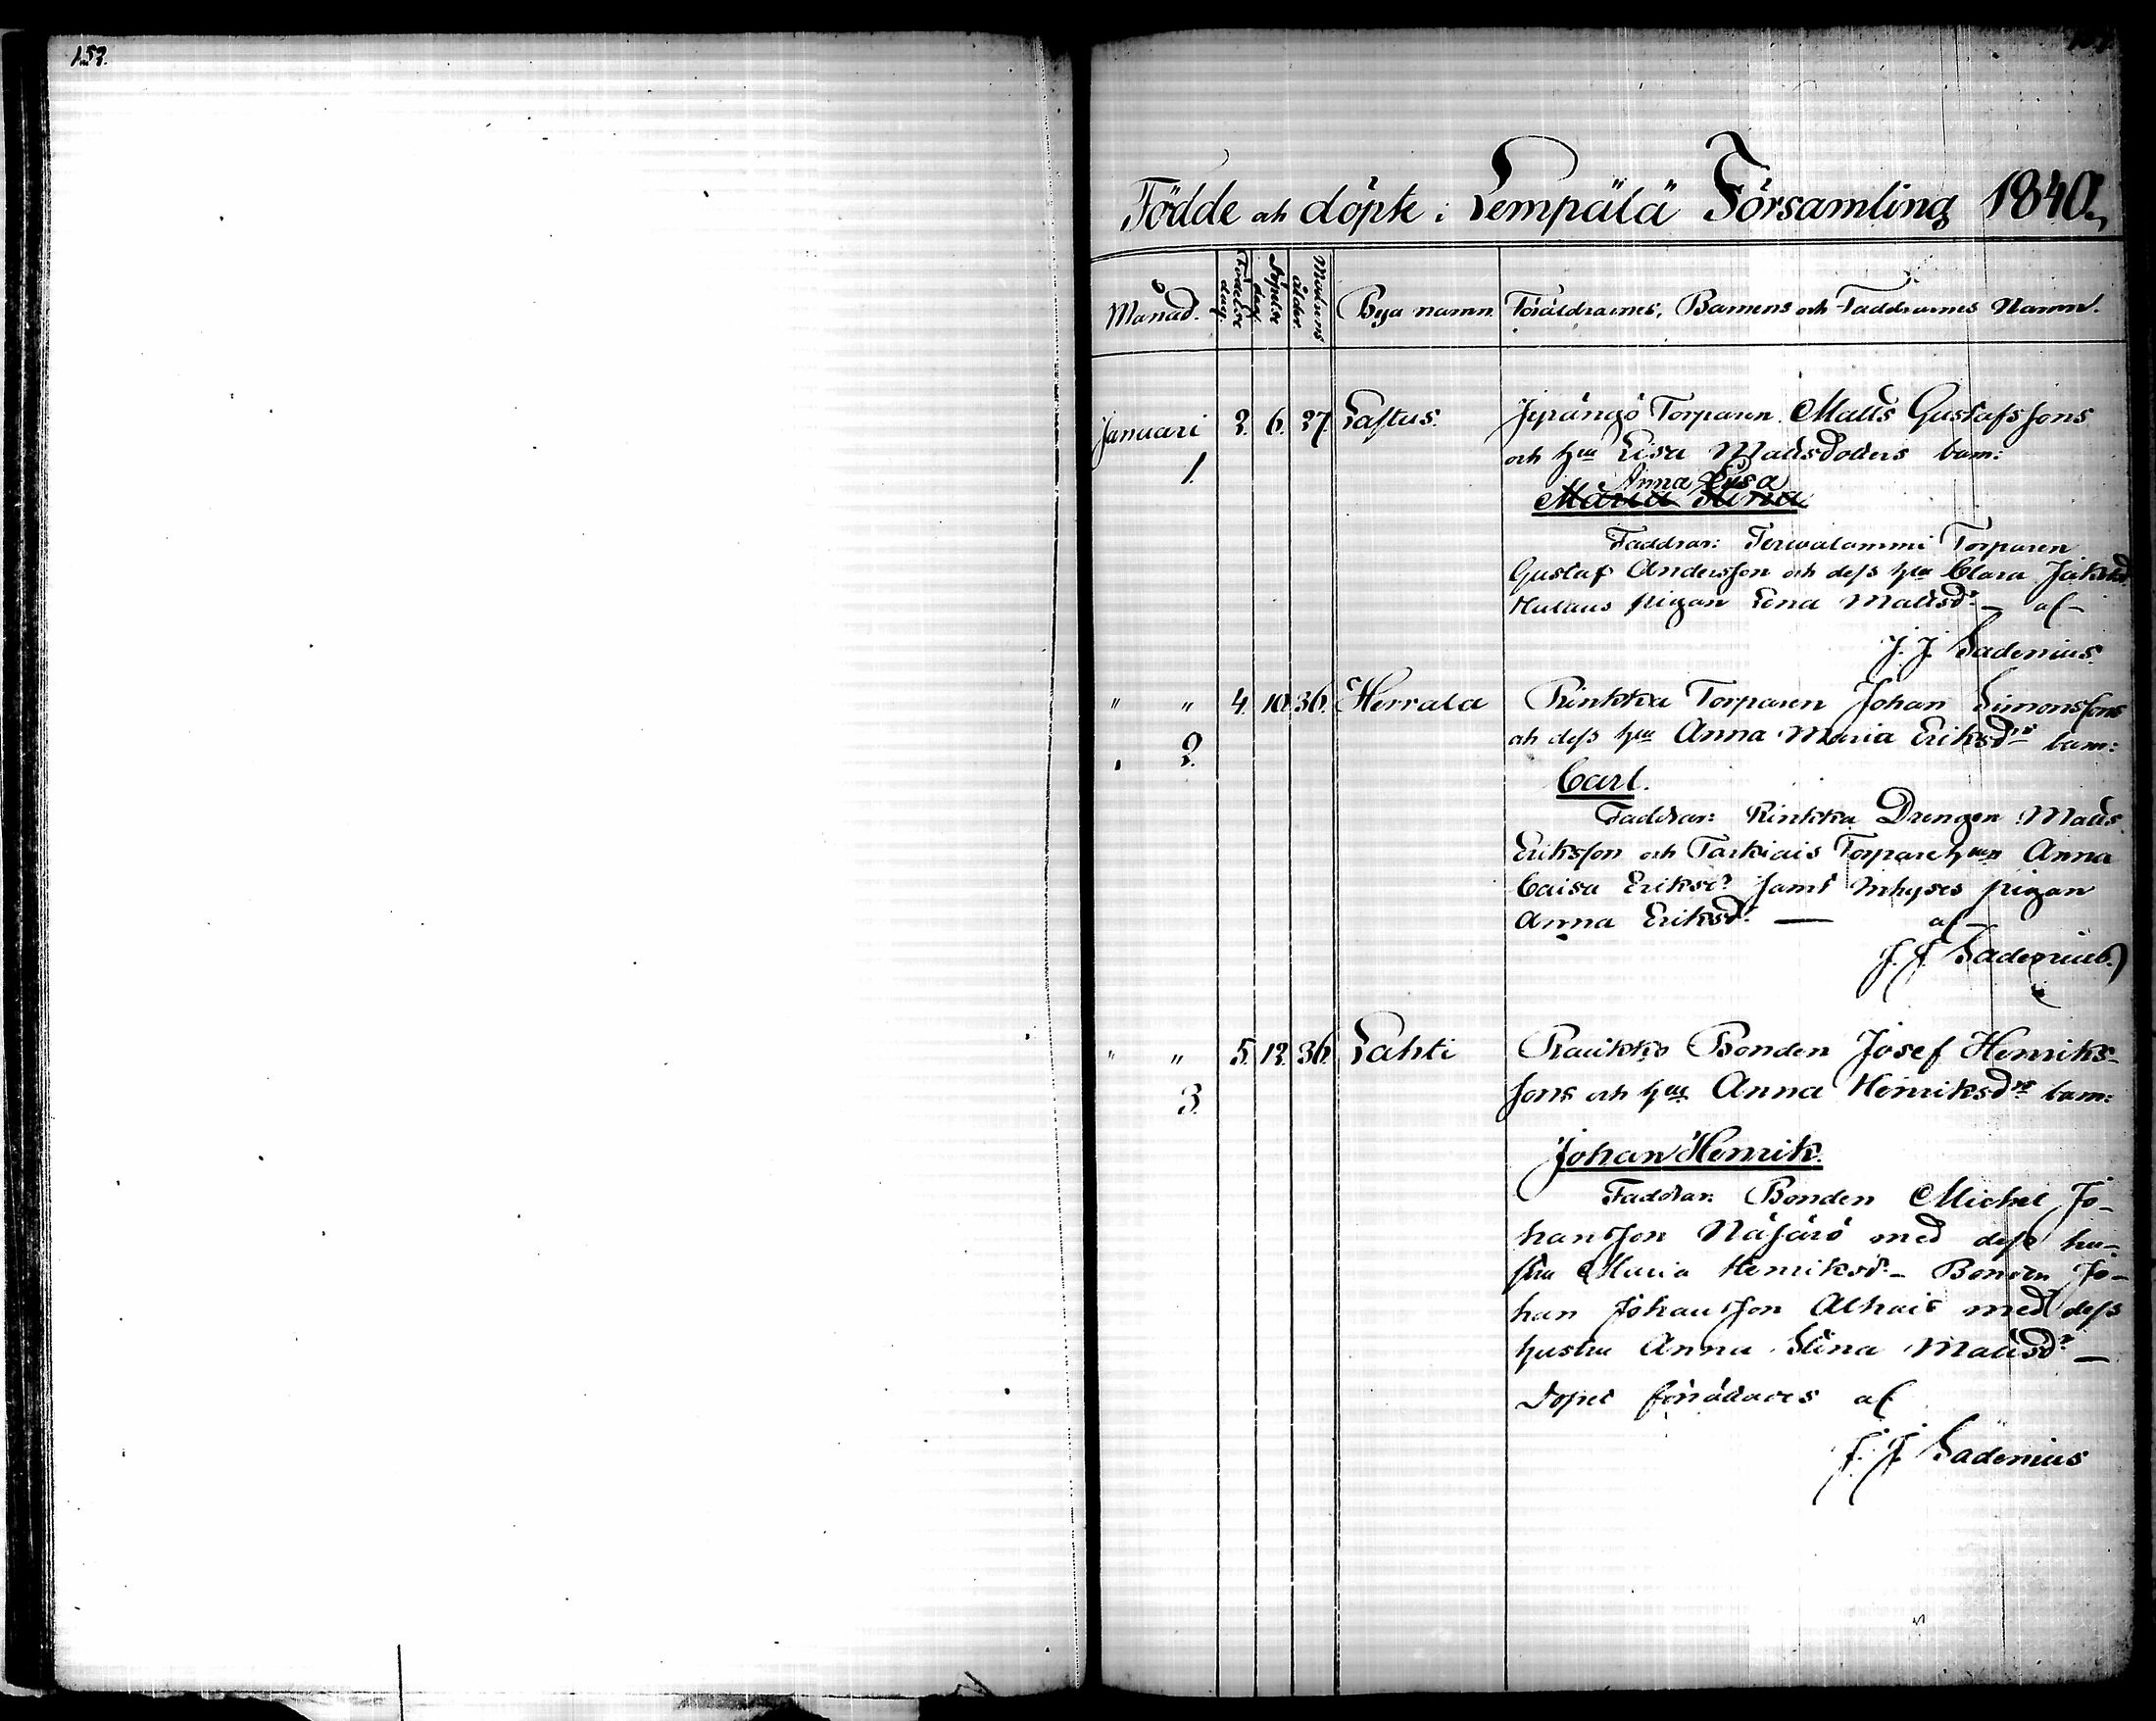 153.
Födde och döpte i Lempälä Församling 1840.
Månad. Födelse dag. Döpelse dag. Modrens ålder. Bya namn. Föräldrarnes, Barnens och Faddrarnes Namn.
Januari 2. 6. 27. Lastus. Jyrängö Torparen Matts Gustafssons
1. och hu Lisa Mattsdotters barn:
Anna Lisa
Maria Stina
Faddrar: Terwalammi Torparen
Gustaf Andersson och dess hu Clara Jaksd.
Hulaus pigan Lena Mattsdr – af –
J. J. Ladenius.
" " 4. 10. 36. Herrala Rinkka Torparen Johan Simonssons
2. och dess hu Anna Maria Eriksdrs barn:
Carl.
Faddrar: Rinkka Drengen Matts
Eriksson och Tarkiais Torparehun Anna
Caisa Eriksdr samt Inhyses pigan
Anna Eriksdr — af –
J. J. Ladenius.
" " 5. 12. 36. Lahti Raukko Bonden Josef Henriks-
3. sons och hu Anna Henriksdrs barn:
Johan Henrik.
Faddrar: Bonden Michel Jo-
hansson Näsärö med dess hu-
stru Maria Henriksdr – Bonden Jo-
han Johansson Alhais med dess
hustru Anna Stina Mattsdr –
Dopet förrättades af
J. J. Ladenius